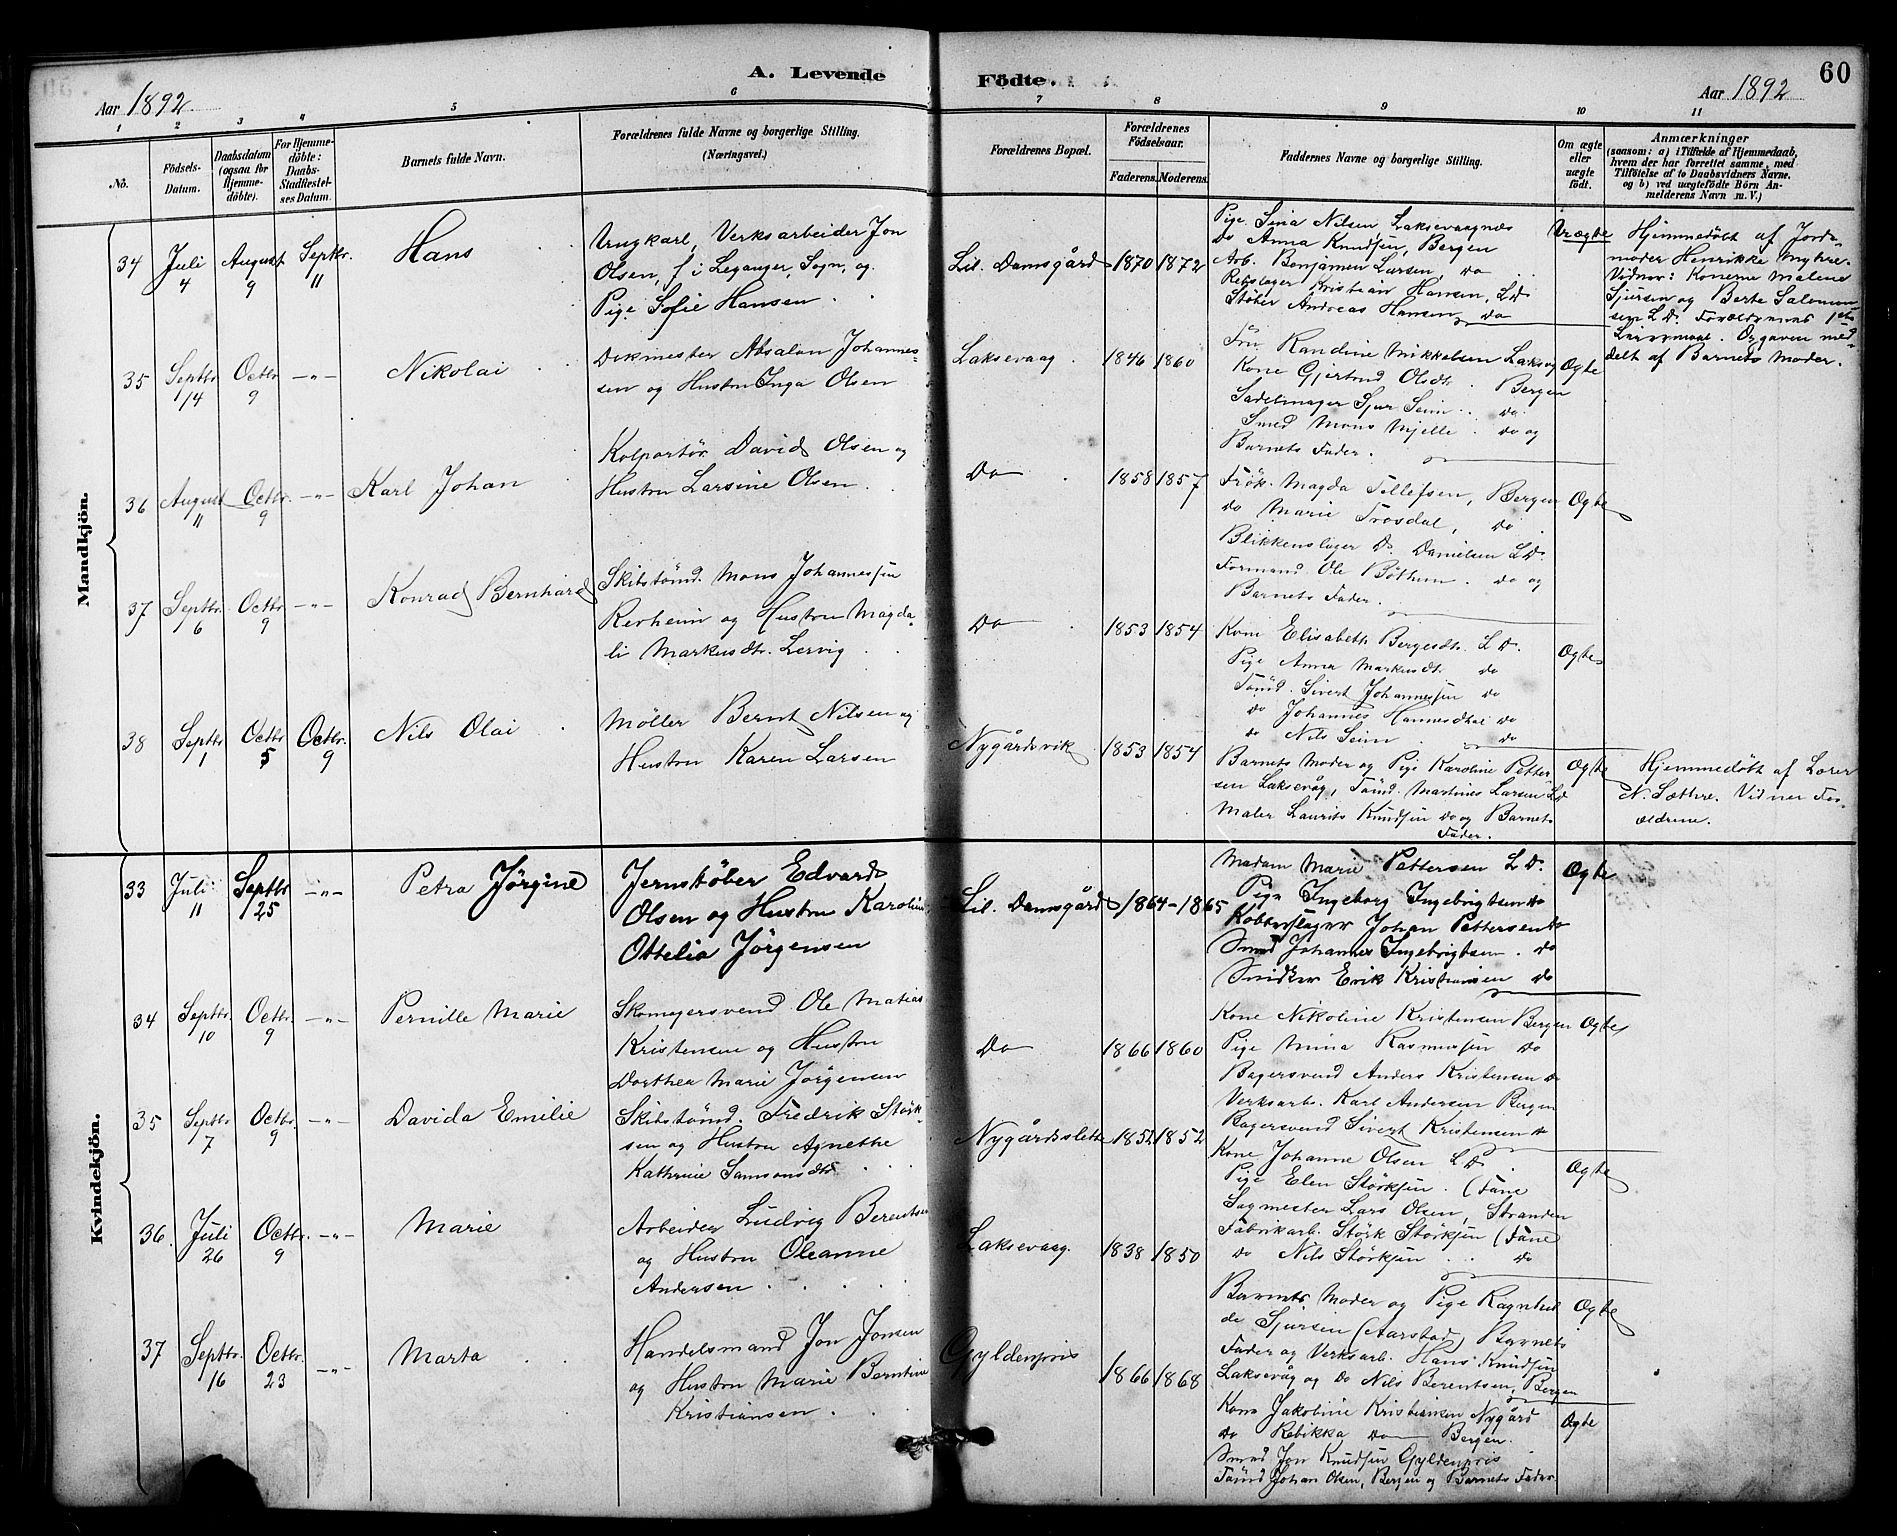 A. Levende Födte.
60
Aar 1892
Aar 1892
1 2 3 4 5 6 7 8 9 10 11
No.
Födsels-Datum.
Daabsdatum (ogsaa for Hjemme-döbte).
For Hjemme-döbte: Daabs-Stadfæstel-ses Datum.
Barnets fulde Navn.
Forældrenes fulde Navne og borgerlige Stilling. (Næringsvei.)
Forældrenes Bopæl.
Forældrenes Födselsaar.
Faderens. Moderens.
Faddernes Navne og borgerlige Stilling.
Om ægte eller uægte födt.
Anmærkninger
(saasom: a) i Tilfælde af Hjemmedaab,
hvem der har forrettet samme, med
Tilföielse af to Daabsvidners Navne.
og b) ved uægtefödte Börn An-
melderens Navn m. V.)
Mandkjön.
34 Juli 4 August 9 Septbr. 11 Hans
Ungkarl, Verksarbeider Jon
Olsen, f. i Leganger, Sogn, og
Pige Sofie Hansen.
Lil. Damsgård 1870 1872
Pige Sina Nilsen Laksevaagnæs
Do Anna Knudsen, Bergen
Arb. Benjamen Larsen, do
Rebslager Kristian Hansen, L.D.
Støber Andreas Hansen, do
Uægte
Hjemmedöbt af Jorde-
moder Henrikke Myhre.
Vidner: Konerne Malene
Sjursen og Berte Salomon-
sen L.D. Forældrenes 1ste
Leiermaal. Opgaven med-
delt af Barnets Moder.
35 Septbr. 14 Octbr. 9 -"- Nikolai
Dokmester Absalon Johannes-
sen og Hustru Inga Olsen
Laksevaag. 1846 1860
Fru Randine Mikkelsen Laksvåg
Kone Gjertrud Olsdtr. Bergen
Sadelmager Sjur Seim. do
Smed Mons Mjelle. do og
Barnets Fader.
Ægte
36 August 11 Octbr. 9 -"- Karl Johan
Kolportör David Olsen og
Hustru Larsine Olsen.
Do 1858 1857
Frök. Magda Tellefsen, Bergen
do Marie Trosdal, do
Blikkenslager D. Danielsen L.D.
Formand Ole Böthun. do og
Barnets Fader.
Ægte
37 Septbr. 6 Octbr. 9 -"- Konrad Bernhard
Skibstømd. Mons Johannessen
Rerheim og Hustru Magda-
li Markusdtr. Lervig.
Do 1853 1854
Kone Elisabeth Bergesdtr. L.D.
Pige Anna Markusdtr. do
Tömd. Sivert Johannessen do
do Johannes Hannesdal do
do Nils Seim do
Ægte
38 Septbr. 1 Octbr. 5 Octbr. 9 Nils Olai
Möller Bernt Nilsen og
Hustru Karen Larsen
Nygårdsvik 1853 1854
Barnets Moder og Pige Karoline Petter-
sen Laksevåg, Tömd. Martines Larsen L.D.
Maler Laurits Knudsen do og Barnets
Fader.
Ægte
Hjemmedöbt af Lærer
N. Sæthre. Vidner For-
ældrene.
Kvindekjön.
33 Juli 11 Septbr. 25 -"- Petra Jörgine
Jernstøber Edvard
Olsen og Hustru Karoline
Ottelia Jörgensen
Lil. Damsgård 1864-1865
Madam Marie Pettersen L.D.
Pige Ingeborg Ingebrigtsen do
Kobberslager Johan Pettersen do
Smed Johannes Ingebrigtsen. do
Snidker Erik Kristiansen do
Ægte
34 Septbr. 10 Octbr. 9 -"- Pernille Marie
Skomagersvend Ole Matias
Kristensen og Hustru
Dorthea Marie Jörgensen
Do 1866 1860
Kone Nikoline Kristensen Bergen
Pige Mina Rasmussen do
Bagersvend Anders Kristensen do
Verksarb. Karl Andersen Bergen
Bagersvend Sivert Kristensen do
Ægte
35 Septbr. 7 Octbr. 9 -"- Davida Emilie
Skibstømd. Fredrik Störk-
sen og Hustru Agnethe
Kathrine Samsonsdtr.
Nygårdsslette 1852 1852
Kone Johanne Olsen L.D.
Pige Elen Störksen. (Fane
Sagmester Lars Olsen, Stranden
Fabrikarb. Störk Störksen (Fane)
do Nils Störksen do
Ægte
36. Juli 26 Octbr. 9 -"- Marie
Arbeider Ludvig Berentsen
og Hustru Oleanne
Andersen
Laksevaag. 1838 1850
Barnets Moder og Pige Ragnhil-
de Sjursen (Aarstad) Barnets
Fader og Verksarb. Hans Knudsen
Laksevåg og Do Nils Berentsen, Bergen
Ægte
37 Septbr. 16 Octbr. 23 -"- Marta
Handelsmand Jon Jonsen
og Hustru Marie Berntine
Kristiansen.
Gyldenpris 1866 1868
Kone Jakoline Kristiansen Nygård
do Rebikka Do Bergen.
Smed Jon Knudsen Gyldenpris
Tömd Johan Olsen, Bergen og Barnets Fader.
Ægte